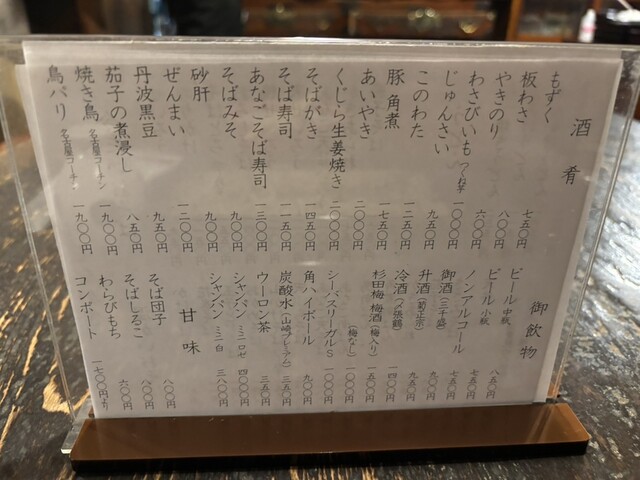 酒肴
もずく 七五〇円
板わさ 八〇〇円
やきのり 六〇〇円
わさびいも つくね芋 一〇〇〇円
じゅんさい 九五〇円
このわた 一二五〇円
豚角煮 一七五〇円
あいやき 二〇〇〇円
くじら生姜焼き 二〇〇〇円
そばがき 一四五〇円
そば寿司 一一五〇円
あなごそば寿司 一三〇〇円
そばみそ 九〇〇円
砂肝 九〇〇円
ぜんまい 一二〇〇円
丹波黒豆 九五〇円
茄子の煮浸し 八五〇円
焼き鳥 名古屋コーチン 一九〇〇円
鳥パリ 名古屋コーチン 一九〇〇円
御飲物
ビール 中瓶 八五〇円
ビール 小瓶 七五〇円
ノンアルコール 七五〇円
御酒(三千盛) 七五〇円
升酒(菊正宗) 九五〇円
冷酒(〆張鶴)
杉田梅 梅酒(梅入り)
(梅なし) 一〇〇〇円
シーバスリーガルS 一〇〇〇円
角ハイボール 九〇〇円
炭酸水(山崎プレミアム) 三五〇円
ウーロン茶 三五〇円
シャンパン ミニロゼ 四〇〇〇円
シャンパン ミニ白 三八〇〇円
甘味
そば団子 八〇〇円
そばしるこ 八〇〇円
わらびもち 六〇〇円
コンポート 一七〇〇円より